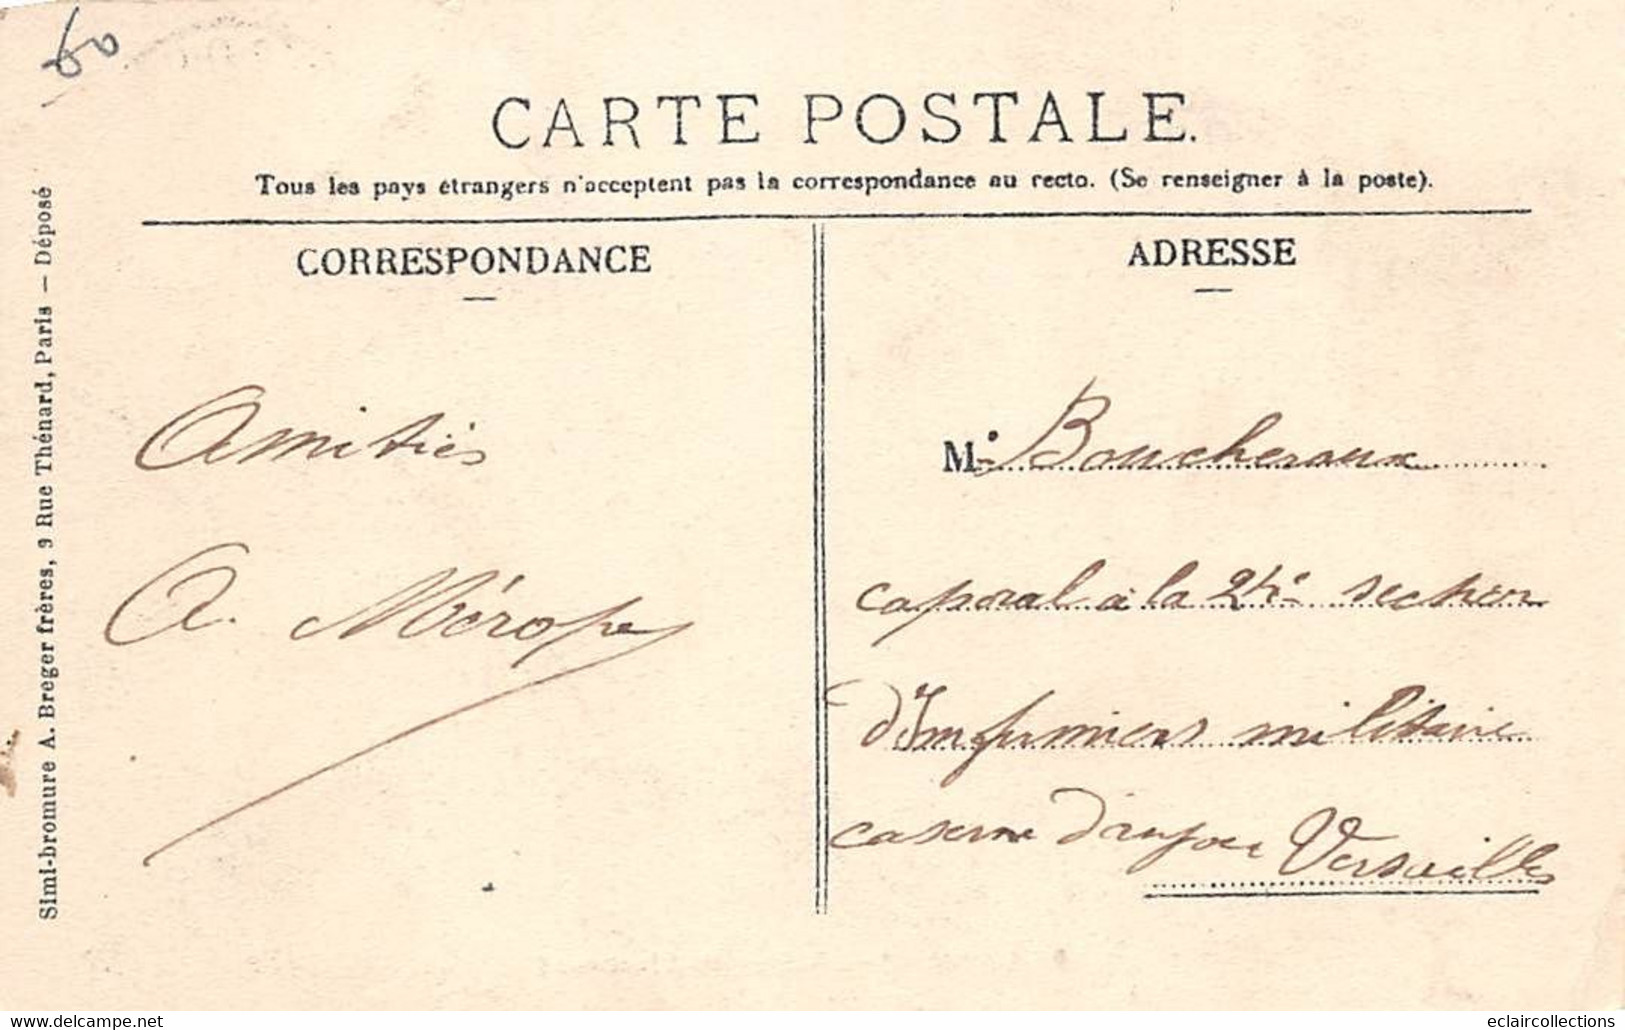 60
CARTE POSTALE.
Tous les pays étrangers n'acceptent pas la correspondance au recto. (Se renseigner à la poste).
CORRESPONDANCE
Amitiés
A. Mérope
ADRESSE
M. Boucheraux
caporal à la 24e section
d'Infirmiers militaire
caserne Versailles
Simi-bromure A. Breger frères, 9 Rue Thénard, Paris — Déposé
www.delcampe.net
eclaircollections